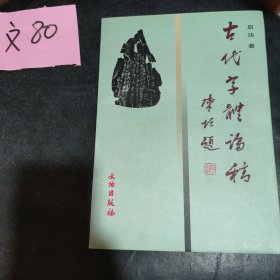 文80
启功 著
古代字體論稿
陳垣題
文物出版社